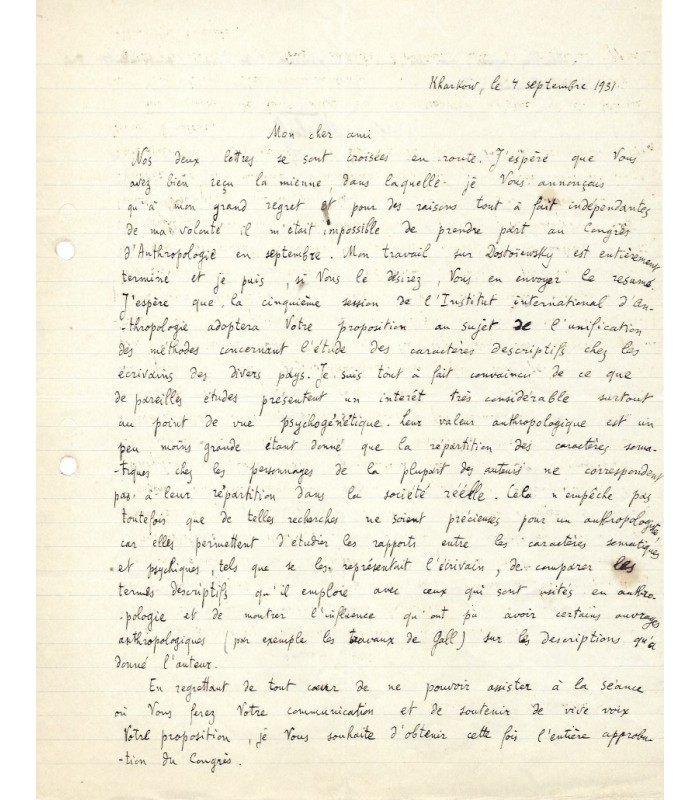 Kharkow, le 4 septembre 1931
Mon cher ami
Nos deux lettres se sont croisées en route. J'espère que Vous
avez bien reçu la mienne, dans laquelle je Vous annonçais
qu'à mon grand regret et pour des raisons tout à fait indépendantes
de ma volonté il m'était impossible de prendre part au Congrès
d'Anthropologie en septembre. Mon travail sur Dostoiewsky est entièrement
terminé et je puis, si Vous le désirez, Vous en envoyer le resumé.
J'espère que la cinquième session de l'Institut international d'An-
-thropologie adoptera Votre proposition au sujet de l'unification
des méthodes concernant l'étude des caractères descriptifs chez les
écrivains des divers pays. Je suis tout à fait convaincu de ce que
de pareilles études présentent un interêt très considérable surtout
au point de vue psychogénétique. Leur valeur anthropologique est un
peu moins grande étant donné que la répartition des caractères soma-
-tiques chez les personnages de la plupart des auteurs ne correspondent
pas à leur répartition dans la société réelle. Cela n'empêche pas
toutefois que de telles recherches ne soient précieuses pour un anthropologiste
car elles permettent d'étudier les rapports entre les caractères somatiques
et psychiques, tels que se les représentait l'écrivain, de comparer les
termes descriptifs qu'il emploie avec ceux qui sont usités en anthro-
-pologie et de montrer l'influence qu'ont pu avoir certains ouvrages
anthropologiques (par exemple les travaux de Gall) sur les descriptions qu'a
donné l'auteur.
En regrettant de tout cœur de ne pouvoir assister à la séance
où Vous ferez Votre communication et de soutenir de vive voix
Votre proposition, je Vous souhaite d'obtenir cette fois l'entière approba-
-tion du Congrès.